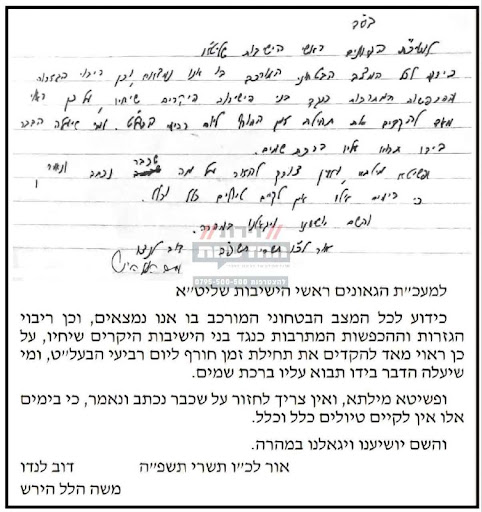 בס"ד
למעכ"ת הגאונים ראשי הישיבות שליט"א
כידוע לכל המצב הבטחוני המורכב בו אנו נמצאים, וכן ריבוי הגזרות
וההכפשות המתרבות כנגד בני הישיבות היקרים שיחיו, על כן ראוי
מאד להקדים את תחילת זמן החורף ליום רביעי הבעל"ט. ומי שיעלה הדבר
בידו תבוא עליו ברכת שמים.
ופשיטא מילתא, ואין צורך לחזור על מה שכבר נכתב ונאמר
כי בימים אלו אין לקיים טיולים כלל וכלל.
והשם יושיענו ויגאלנו במהרה.
אור לכ"ו תשרי תשפ"ה דוב לנדו
להצטרפות 0795-500-500
למעכ"ת הגאונים ראשי הישיבות שליט"א
כידוע לכל המצב הבטחוני המורכב בו אנו נמצאים, וכן ריבוי
הגזרות וההכפשות המתרבות כנגד בני הישיבות היקרים שיחיו, על
כן ראוי מאד להקדים את תחילת זמן חורף ליום רביעי הבעל"ט, ומי
שיעלה הדבר בידו תבוא עליו ברכת שמים.
ופשיטא מילתא, ואין צריך לחזור על שכבר נכתב ונאמר, כי בימים
אלו אין לקיים טיולים כלל וכלל.
והשם יושיענו ויגאלנו במהרה.
אור לכ"ו תשרי תשפ"ה דוב לנדו
משה הלל הירש